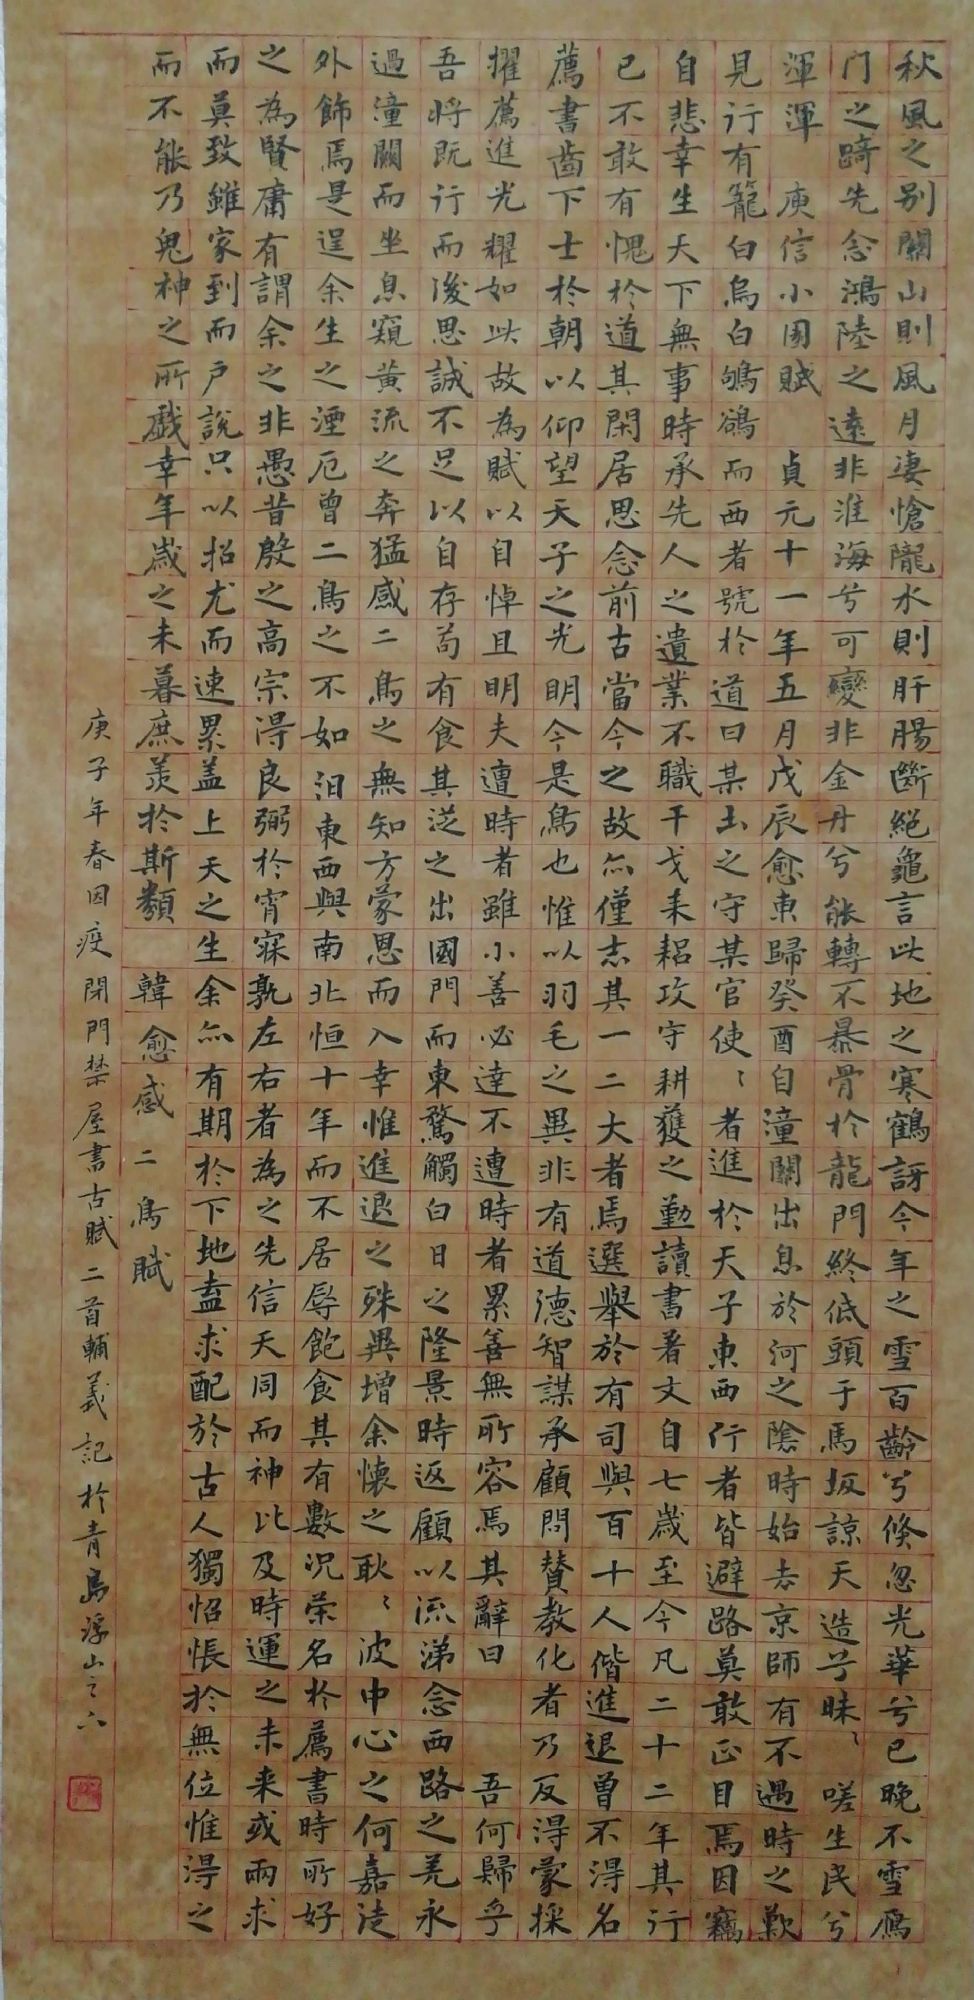 秋風之别關山則風月凄愴隴水則肝腸斷絕龜言此地之寒鶴訝今年之雪百齡兮倏忽光華兮已晚不雪鴈
门之踦先念鴻陸之遠非淮海兮可變非金丹兮能轉不暴骨於龍門終低頭于馬坂諒天造兮昧〻嗟生民兮
渾渾 庾信小園賦 貞元十一年五月戊辰愈東歸癸酉自潼關出息於河之陰時始去京師有不遇時之歎
見行有籠白烏白鸲鵒而西者號於道曰某土之守某官使〻者進於天子東西行者皆避路莫敢正目焉因竊
自悲幸生天下無事時承先人之遺業不職干戈耒耜攻守耕獲之勤讀書著文自七歲至今凡二十二年其行
已不敢有愧於道其閑居思念前古當今之故亦僅志其一二大者焉選舉於有司與百十人偕進退曾不得名
薦書齒下士於朝以仰望天子之光明今是鳥也惟以羽毛之異非有道德智謀承顧問贊教化者乃反得蒙採
擢薦進光耀如此故為賦以自悼且明夫遭時者雖小善必達不遭時者累善無所容焉其辭曰 吾何歸乎
吾将既行而後思誠不足以自存苟有食其從之出國門而東騖觸白日之隆景時返顧以流涕念西路之羌永
過潼關而坐息窺黄流之奔猛感二鳥之無知方蒙恩而入幸惟進退之殊異增余懷之耿〻波中心之何嘉徒
外飾焉是逞余生之湮厄曾二鳥之不如汨東西與南北恒十年而不居辱飽食其有數況荣名於薦書時所好
之為賢庸有謂余之非愚昔殷之高宗得良弼於宵寐孰左右者為之先信天同而神比及時運之未来或兩求
而莫致雖家到而户說只以招尤而速累盖上天之生余亦有期於下地盍求配於古人獨怊悵於無位惟得之
而不能乃鬼神之所戲幸年歲之未暮庶羡於斯類 韓愈感二鳥賦
庚子年春因疫閉門禁屋書古賦二首輔義記於青島浮山之六